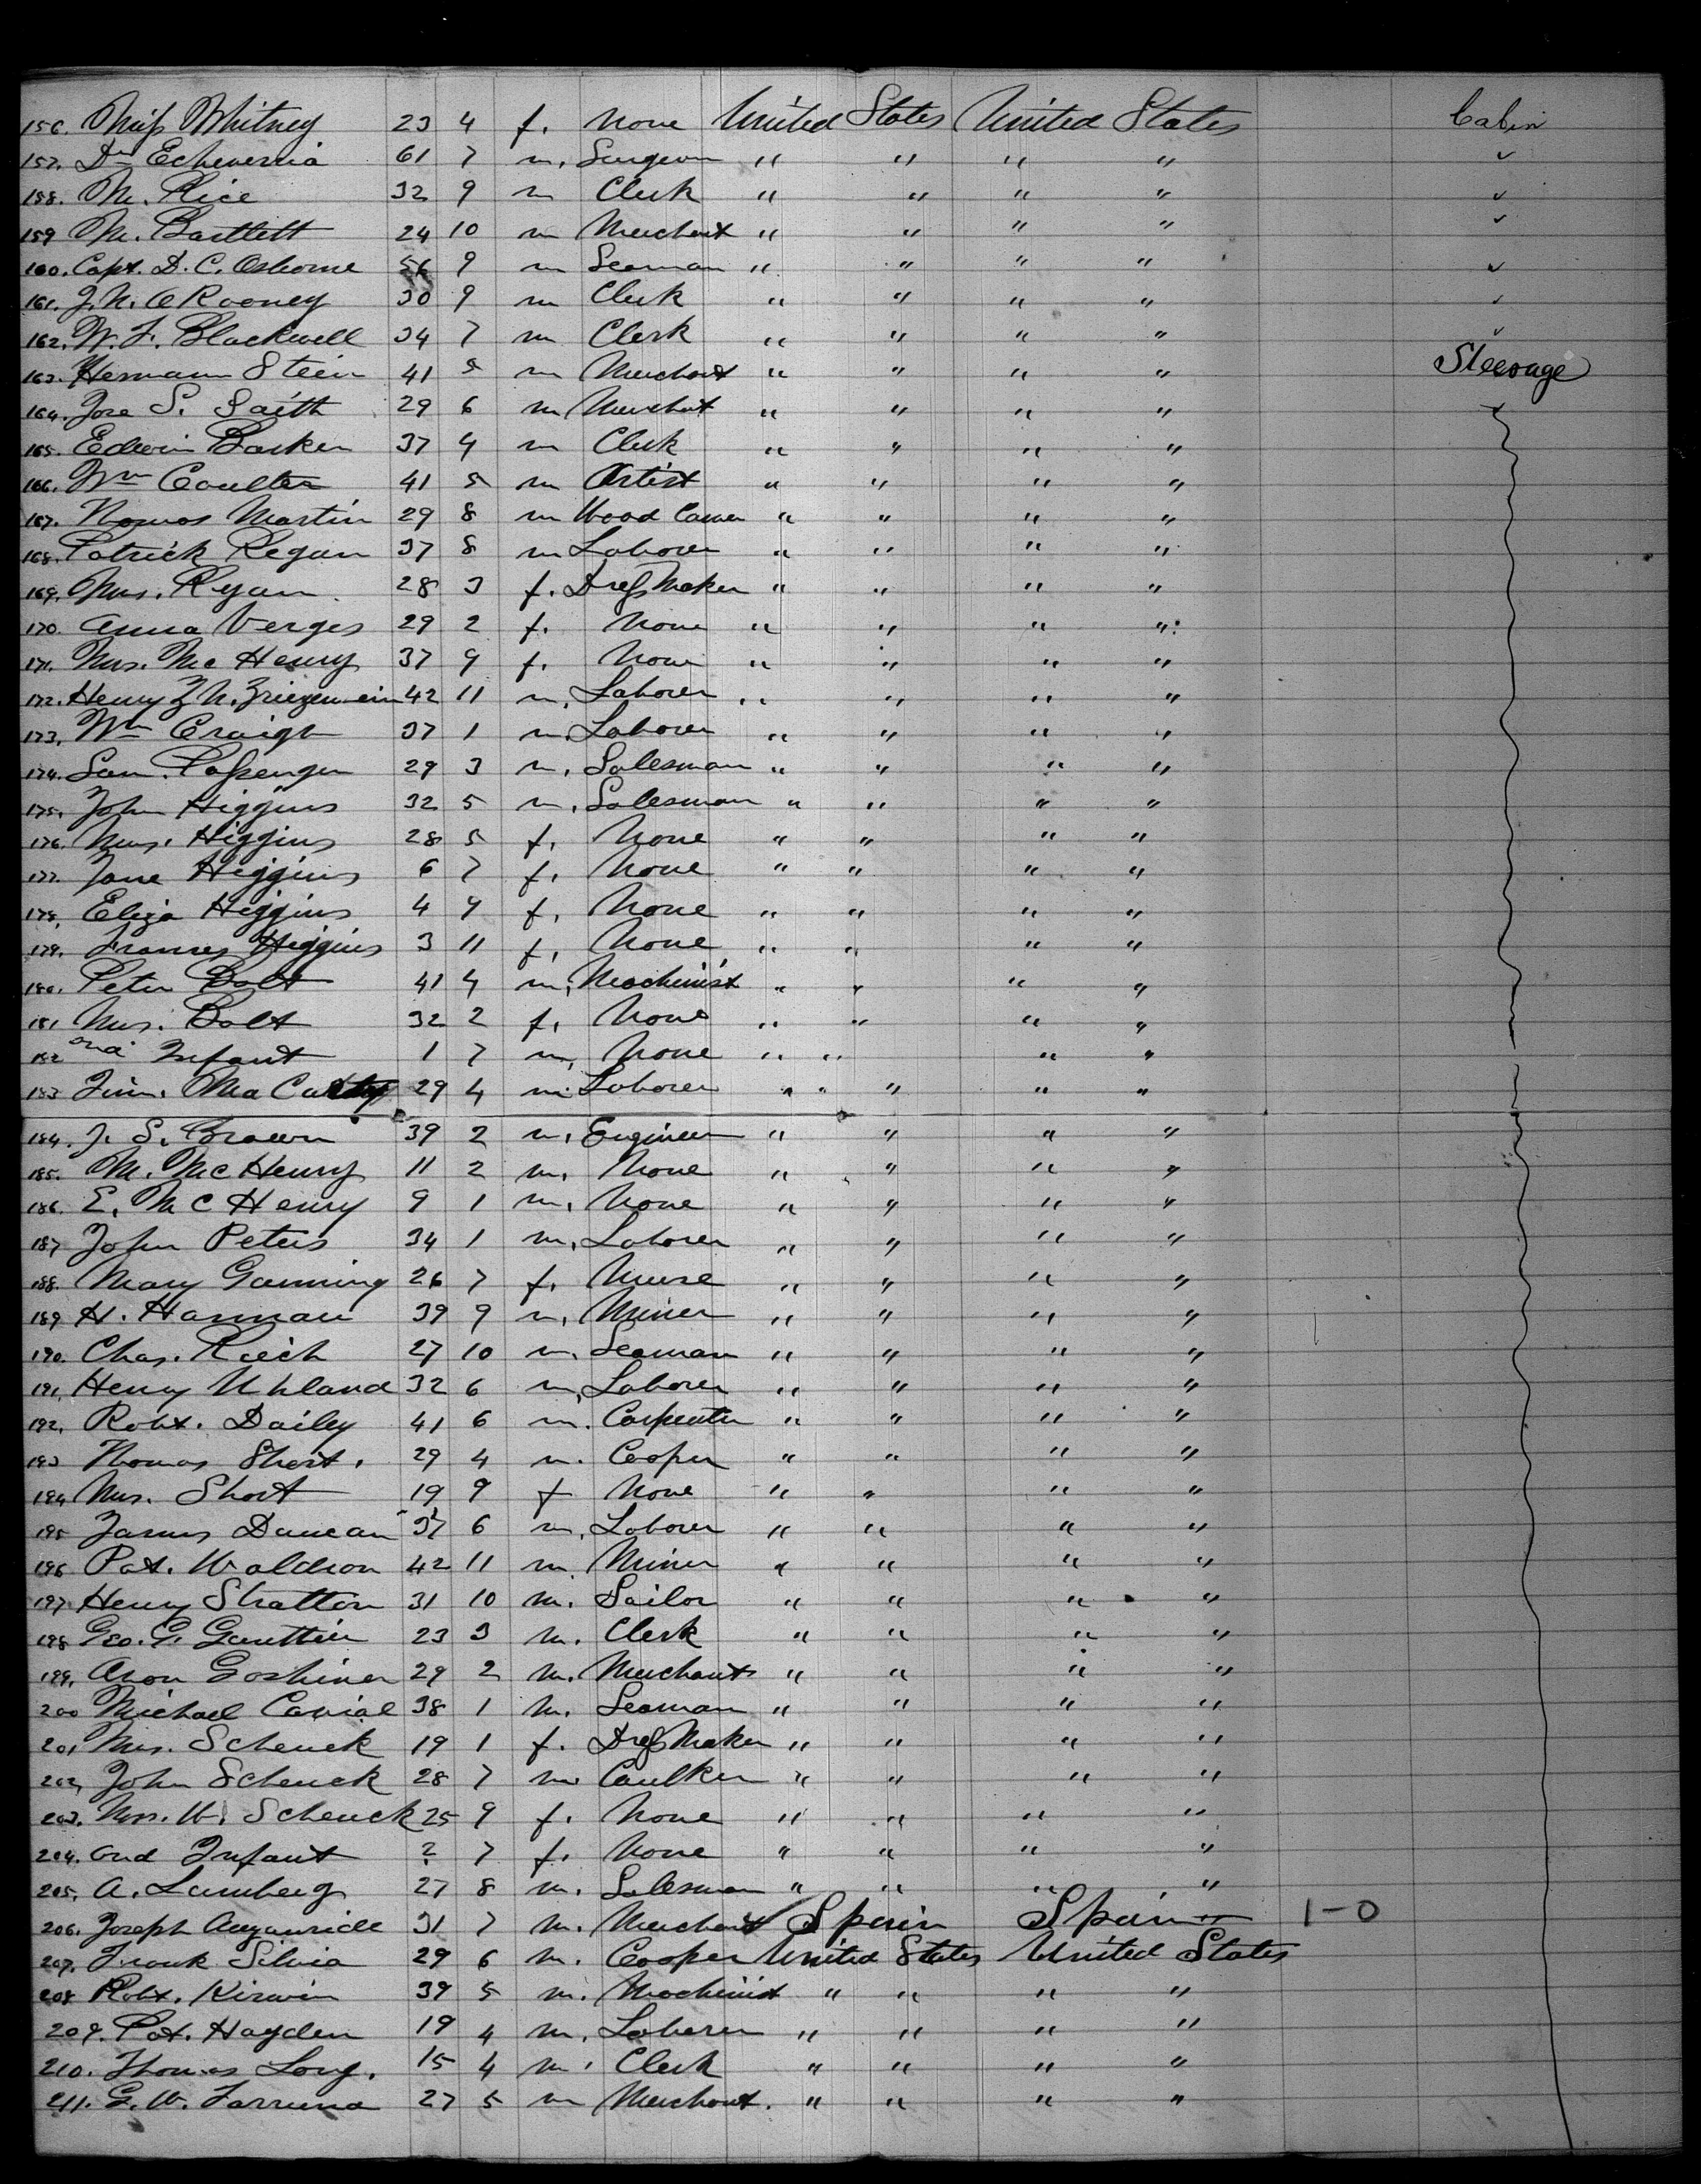 156. Miss Whitney 23 4 f. None United States United States Cabin
157. Dr Echeverria 61 7 m. Surgeon " " " " ✓
158. M. Rice 32 9 m Clerk " " " " ✓
159 M. Bartlett 24 10 m Merchant " " " " ✓
160. Capt. D. C. Osborne 56 9 m Seaman " " " " ✓
161. J. N. O Rooney 30 9 m Clerk " " " " ✓
162. W. F. Blackwell 34 7 m Clerk " " " " ✓
163. Hermann Stein 41 5 m Merchant " " " " Steerage
164. Jose S. Saith 29 6 m Merchant " " " "
165. Edwin Barker 37 4 m Clerk " " " "
166. Wm Coulter 41 5 m Artist " " " "
167. Thomas Martin 29 8 m Wood Carver " " " "
168. Patrick Regan 37 8 m Laborer " " " "
169. Mrs. Ryan 28 3 f. Dress Maker " " " "
170. Anna Verges 29 2 f. None " " " "
171. Mrs. Mc Henry 37 9 f. None " " " "
172. Henry 42 11 m. Laborer " " " "
173. Wm Craigh 37 1 m. Laborer " " " "
174. Sam. Passenger 29 3 m. Salesman " " " "
175. John Higgins 32 5 m. Salesman " " " "
176. Mrs. Higgins 28 5 f. None " " " "
177. Jane Higgins 6 7 f. None " " " "
178. Eliza Higgins 4 4 f. None " " " "
179. Frances Higgins 3 11 f. None " " " "
180. Peter Bolt 41 4 m. Machinist " " " "
181 Mrs. Bolt 32 2 f. None " " " "
182 and Infant 1 7 m. None " " " "
183 Tim. Mc Carthy 29 4 m. Laborer " " " "
184. J. S. Brown 39 2 m. Engineer " " " "
185. M. Mc Henry 11 2 m. None " " " "
186. E. Mc Henry 9 1 m. None " " " "
187 John Peters 34 1 m. Laborer " " " "
188. Mary Ganning 26 7 f. Nurse " " " "
189 H. Harman 39 9 m. Miner " " " "
190. Chas. Riech 27 10 m. Seaman " " " "
191. Henry Uhland 32 6 m. Laborer " " " "
192. Robt. Dailey 41 6 m. Carpenter " " " "
193 Thomas Short. 29 4 m. Cooper " " " "
194 Mrs. Short 19 9 f None " " " "
195 James Duncan 37 6 m. Laborer " " " "
196 Pat. Waldron 42 11 m. Miner " " " "
197 Henry Stratton 31 10 m. Sailor " " " "
198 Geo. G. Gauttier 23 3 m. Clerk " " " "
199. Aron Goshiner 29 2 m. Merchant " " " "
200 Michael Cavial 38 1 m. Seaman " " " "
201 Mrs. Schenck 19 1 f. Dress Maker " " " "
202, John Schenck 28 7 m Caulker " " " "
203. Mrs. W. Schenck 25 9 f. None " " " "
204. and Infant ? 7 f. None " " " "
205. A. Lamberg 27 8 m. Salesman " " " "
206. Joseph 31 7 m. Merchant Spain Spain 1-0
207. Frank Silvia 29 6 m. Cooper United States United States
208 Robt. Kirwin 39 5 m. Machinist " " " "
209. Pat. Hayden 19 4 m. Laborer " " " "
210. Thomas Long. 15 4 m. Clerk " " " "
211. G. W. 27 5 m Merchant. " " " "